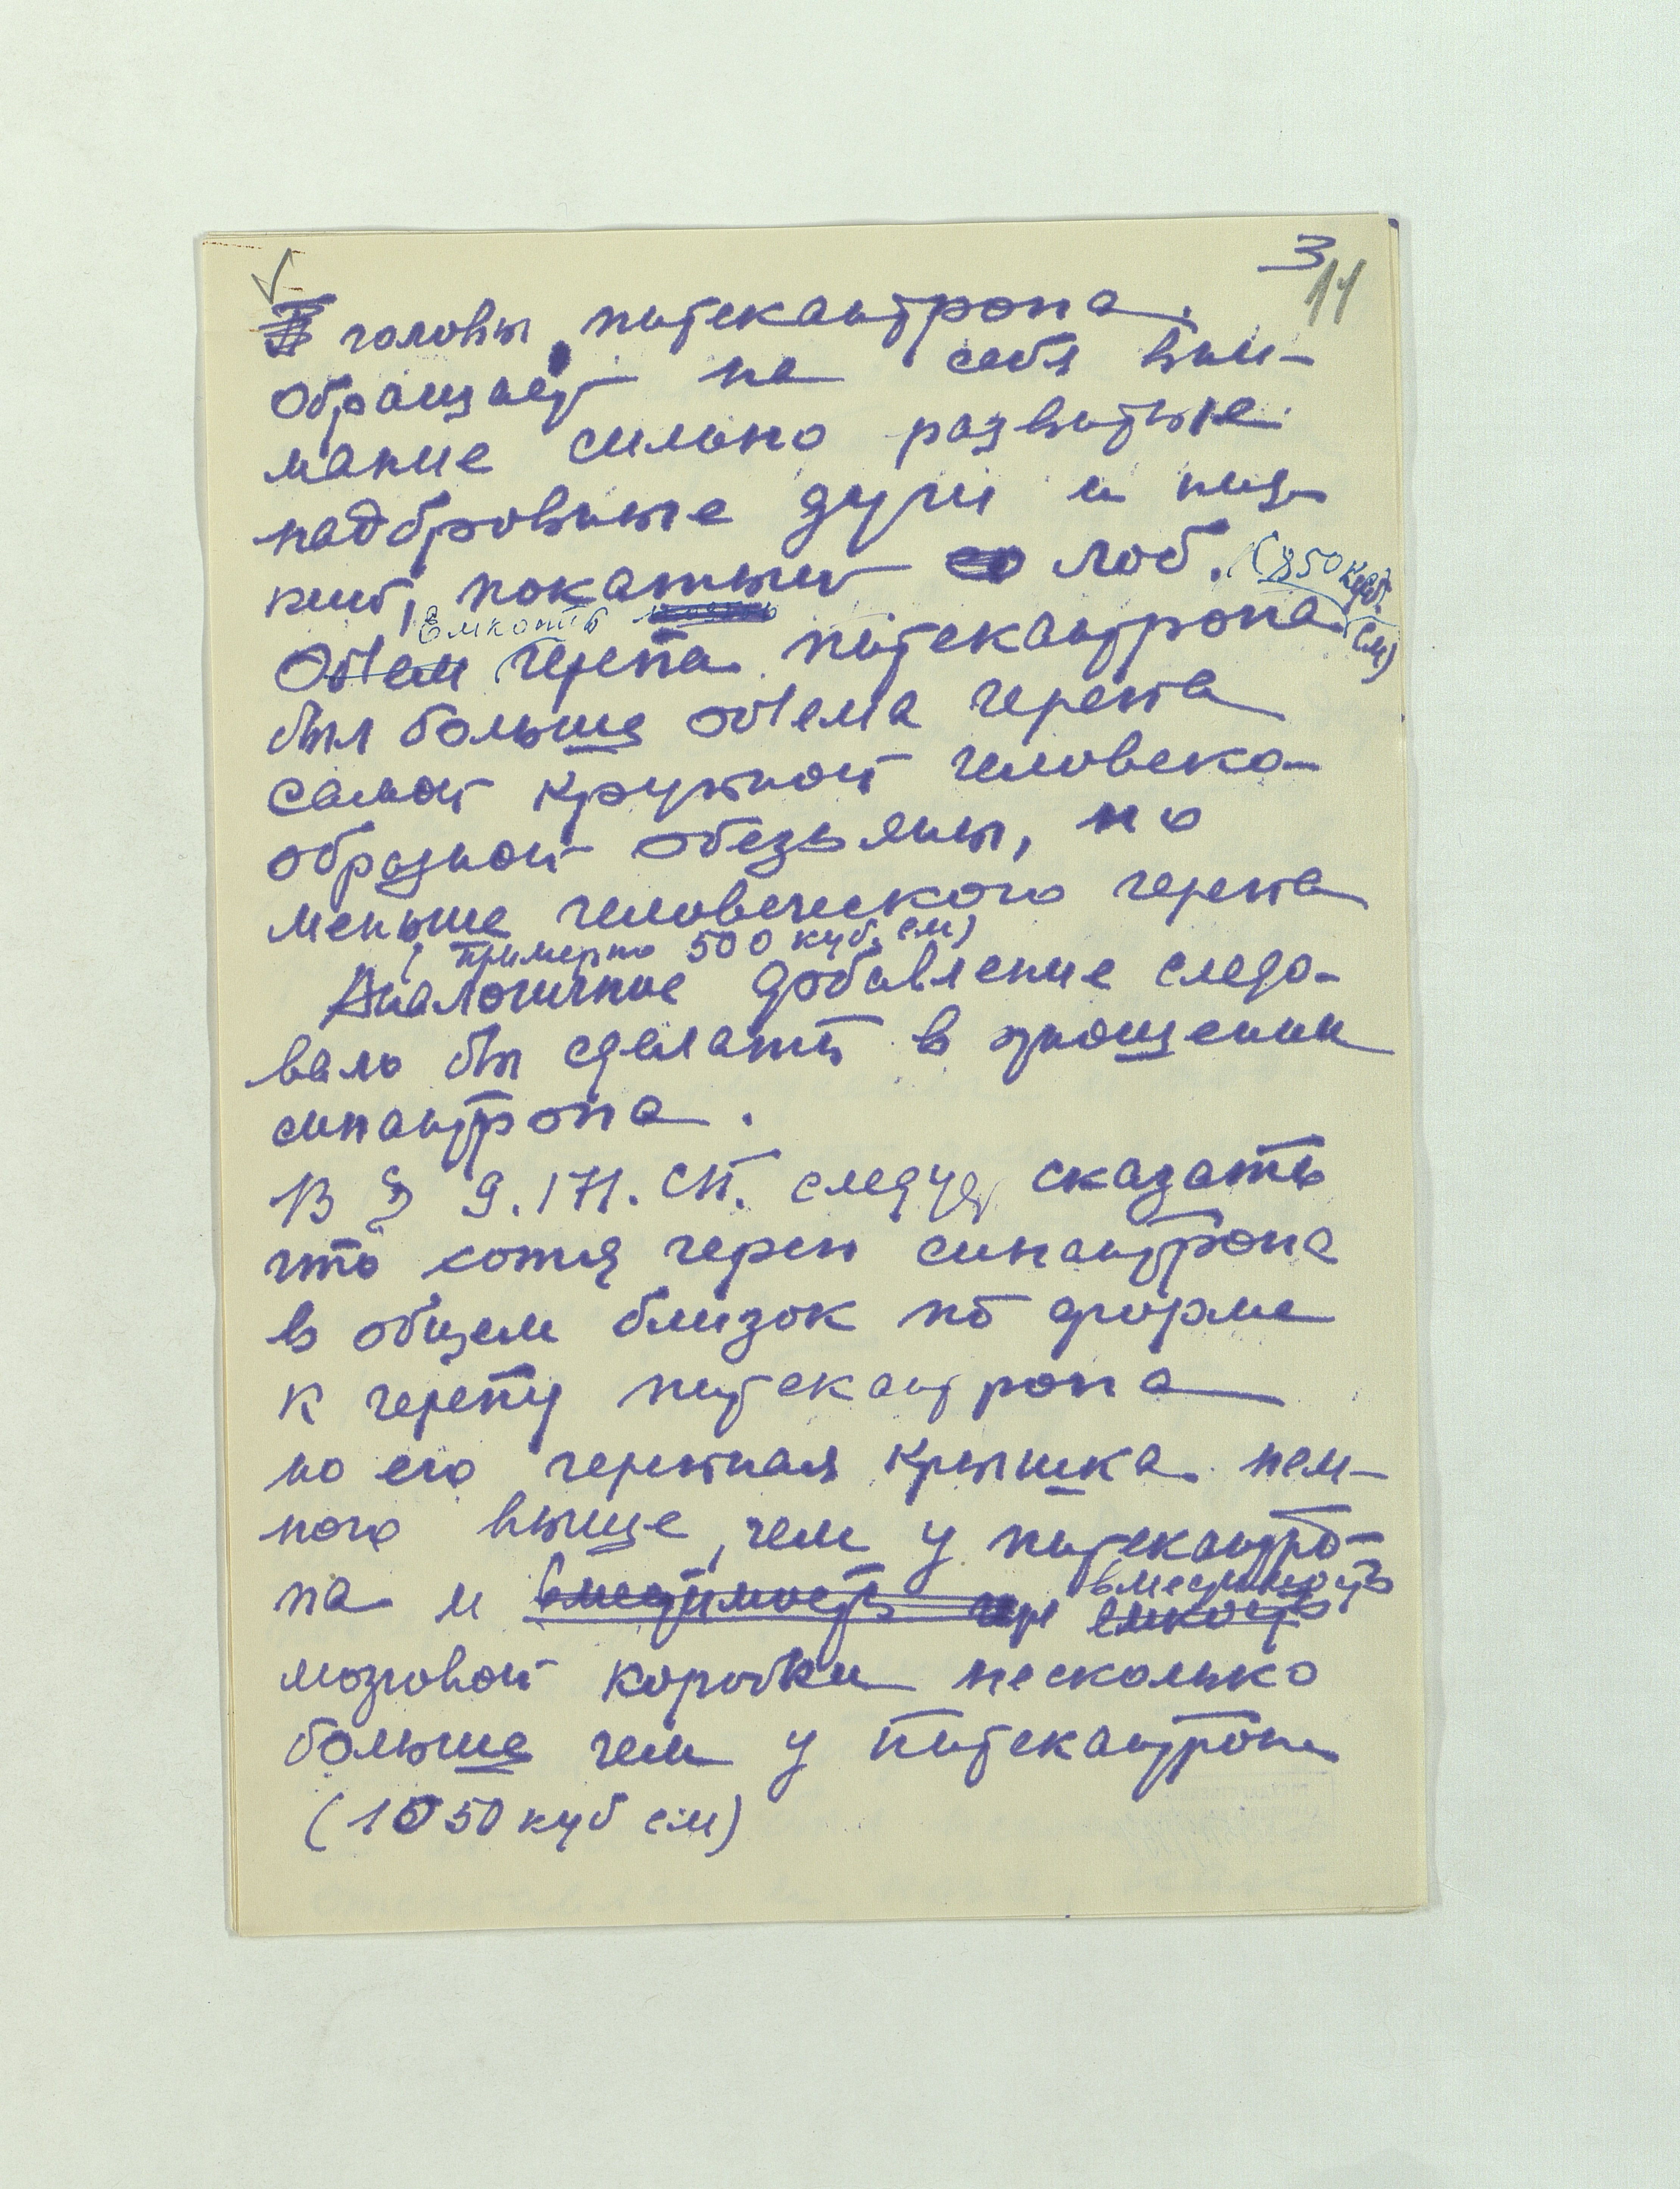 3
11
головы питекантропа.
обращает на себя вни-
мание сильно развитые
надбровные дуги и низ-
кий, покатый лоб. (850 куб.
Емкость
см)
Об'ем черепа питекантропа
был больше об'ема черепа
самой крупной человеко-
образной обезьяны, но
меньше человеческого черепа
(примерно 500 куб. см)
Аналогичное добавление следо-
вало бы сделать в отношении
синантропа.
В § 9.171. СП. следует сказать
что хотя череп синантропа
в общем близок по форме
к черепу питекантропа
но его черепная крышка нем-
ного выше, чем у питекантро-
вместимость
па и вместимость чер емкость
мозговой коробки несколько
больше чем у питекантропа
(1050 куб см)